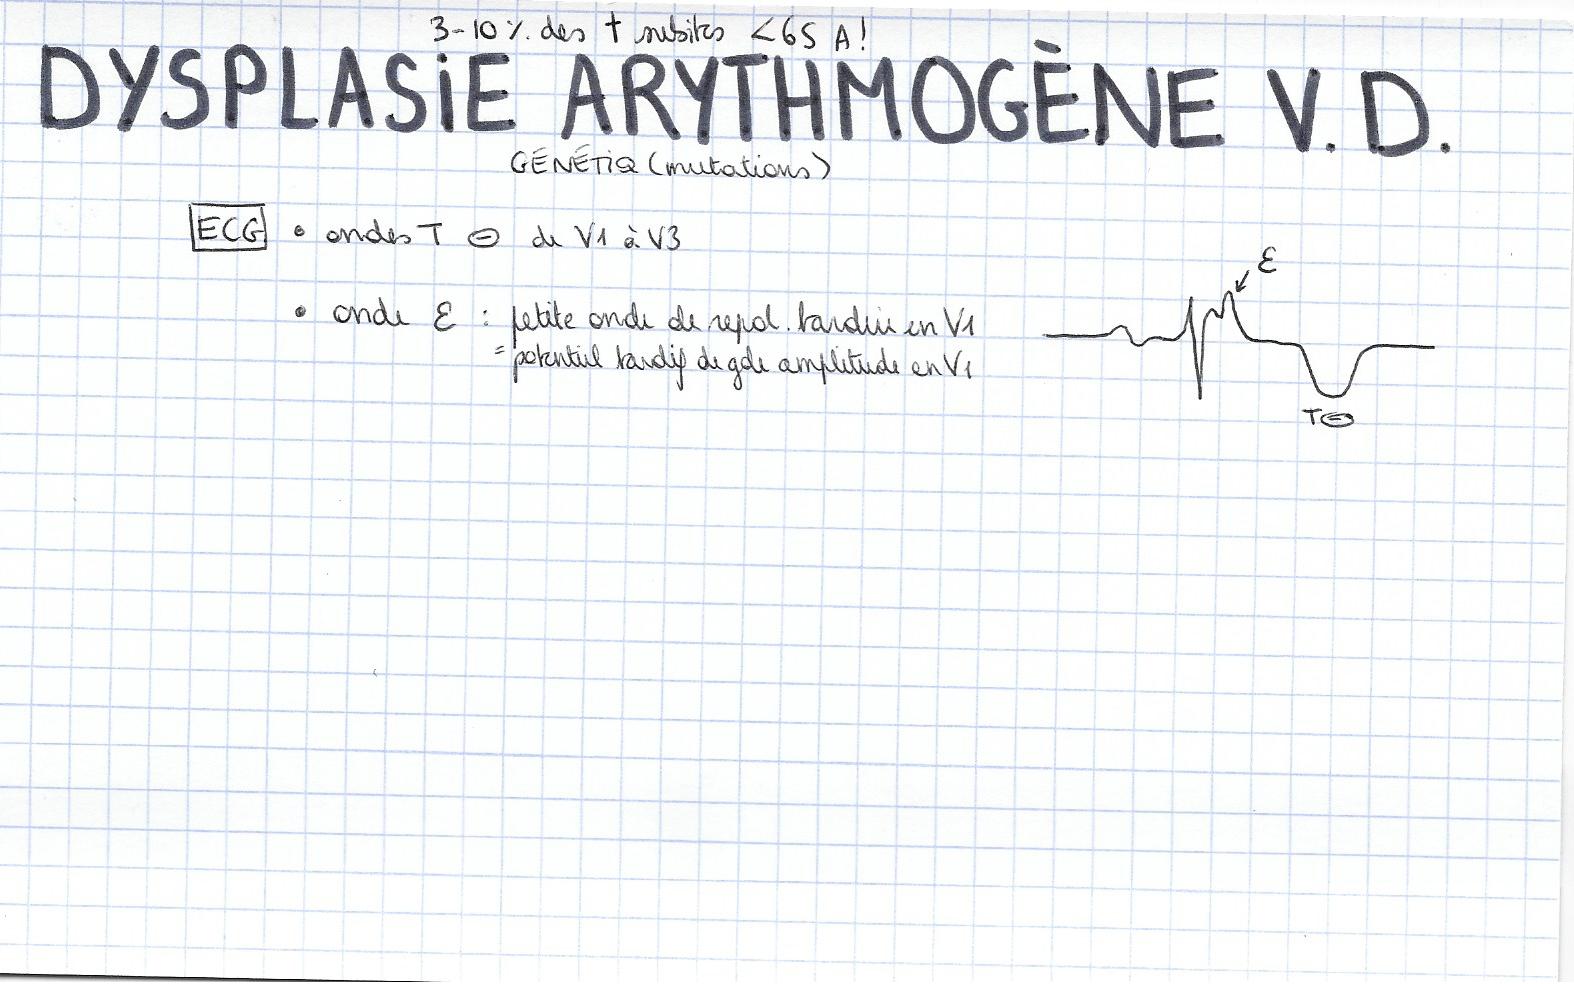 3-10 % des † subites < 65 A !
DYSPLASiE ARYTHMOGÈNE V.D.
GÉNÉTIQ (mutations)
ECG • ondes T ⊖ de V1 à V3
ε
• onde ε : petite onde de repol. tardive en V1
= potentiel tardif de gde amplitude en V1
T⊖